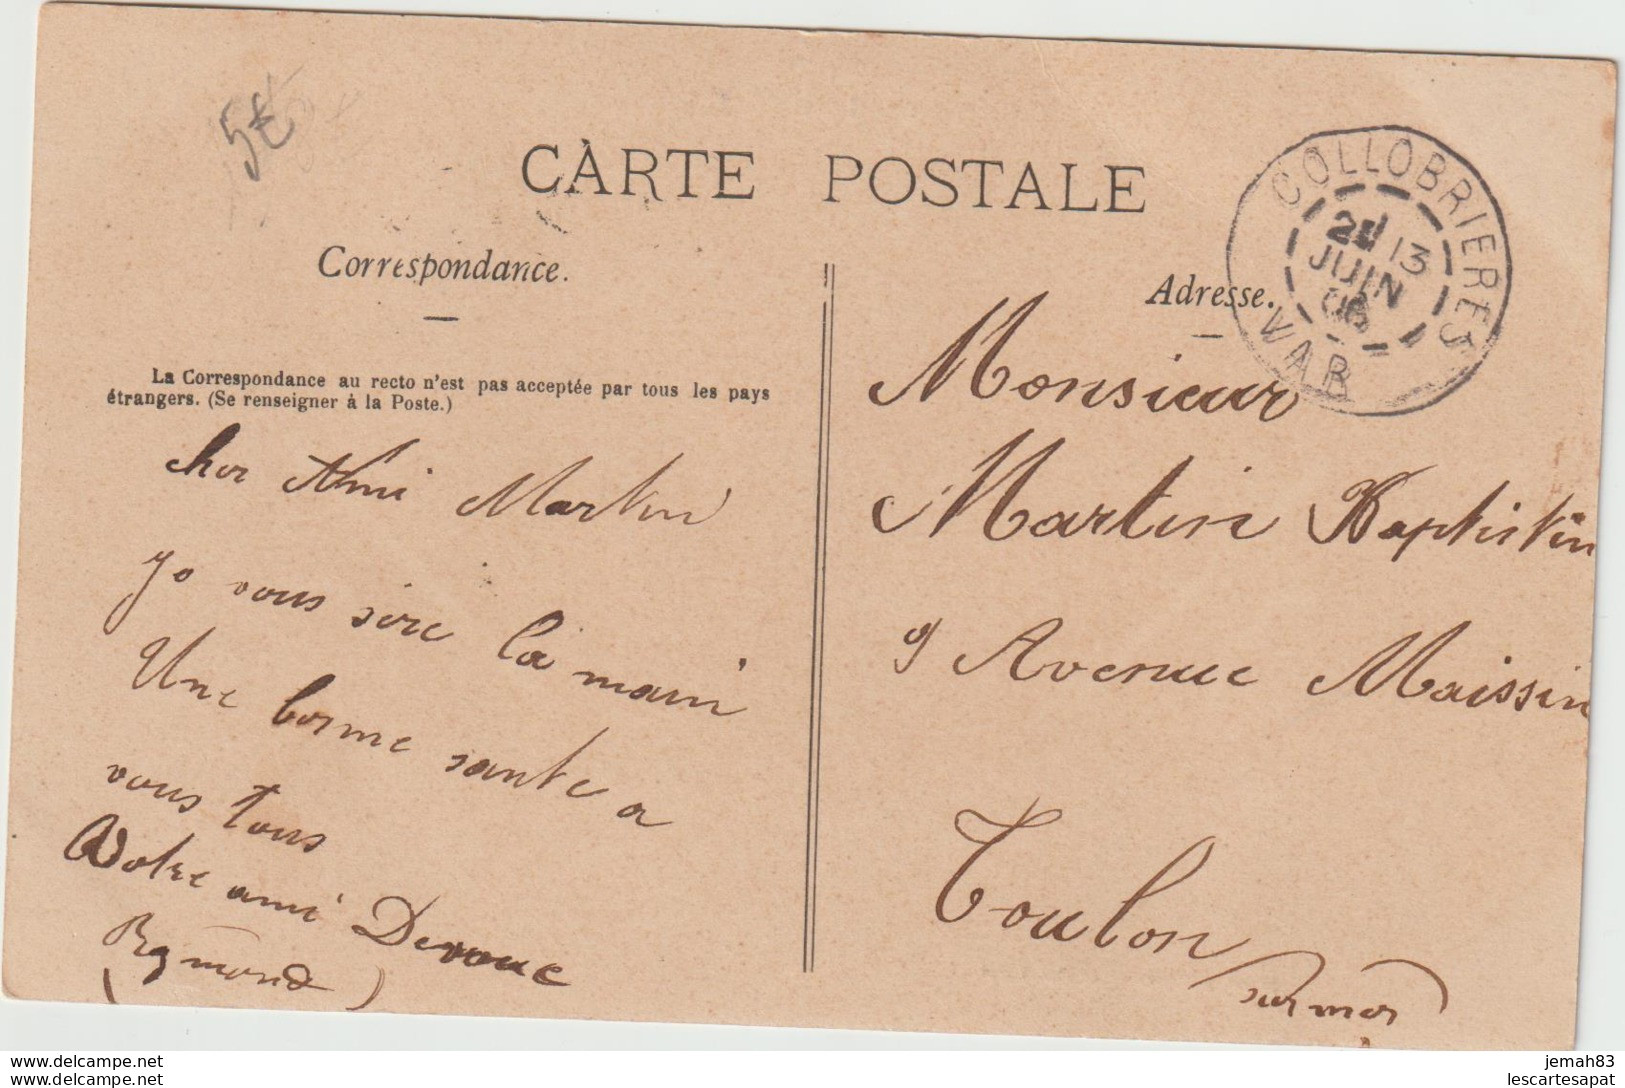 5€
CARTE POSTALE
COLLOBRIERES
VAR
2E 13
JUIN
06
Correspondance.
Adresse.
La Correspondance au recto n'est pas acceptée par tous les pays
étrangers. (Se renseigner à la Poste.)
cher Ami Martin
Je vous sere la main
Une bonne sante a
vous tous
Votre ami Devoue
(Rymond)
Monsieur
Martin Baptistin
9 Avenue Maissin
Toulon
sur mer
www.delcampe.net
www.delcampe.net
jemah83
lescartesapat